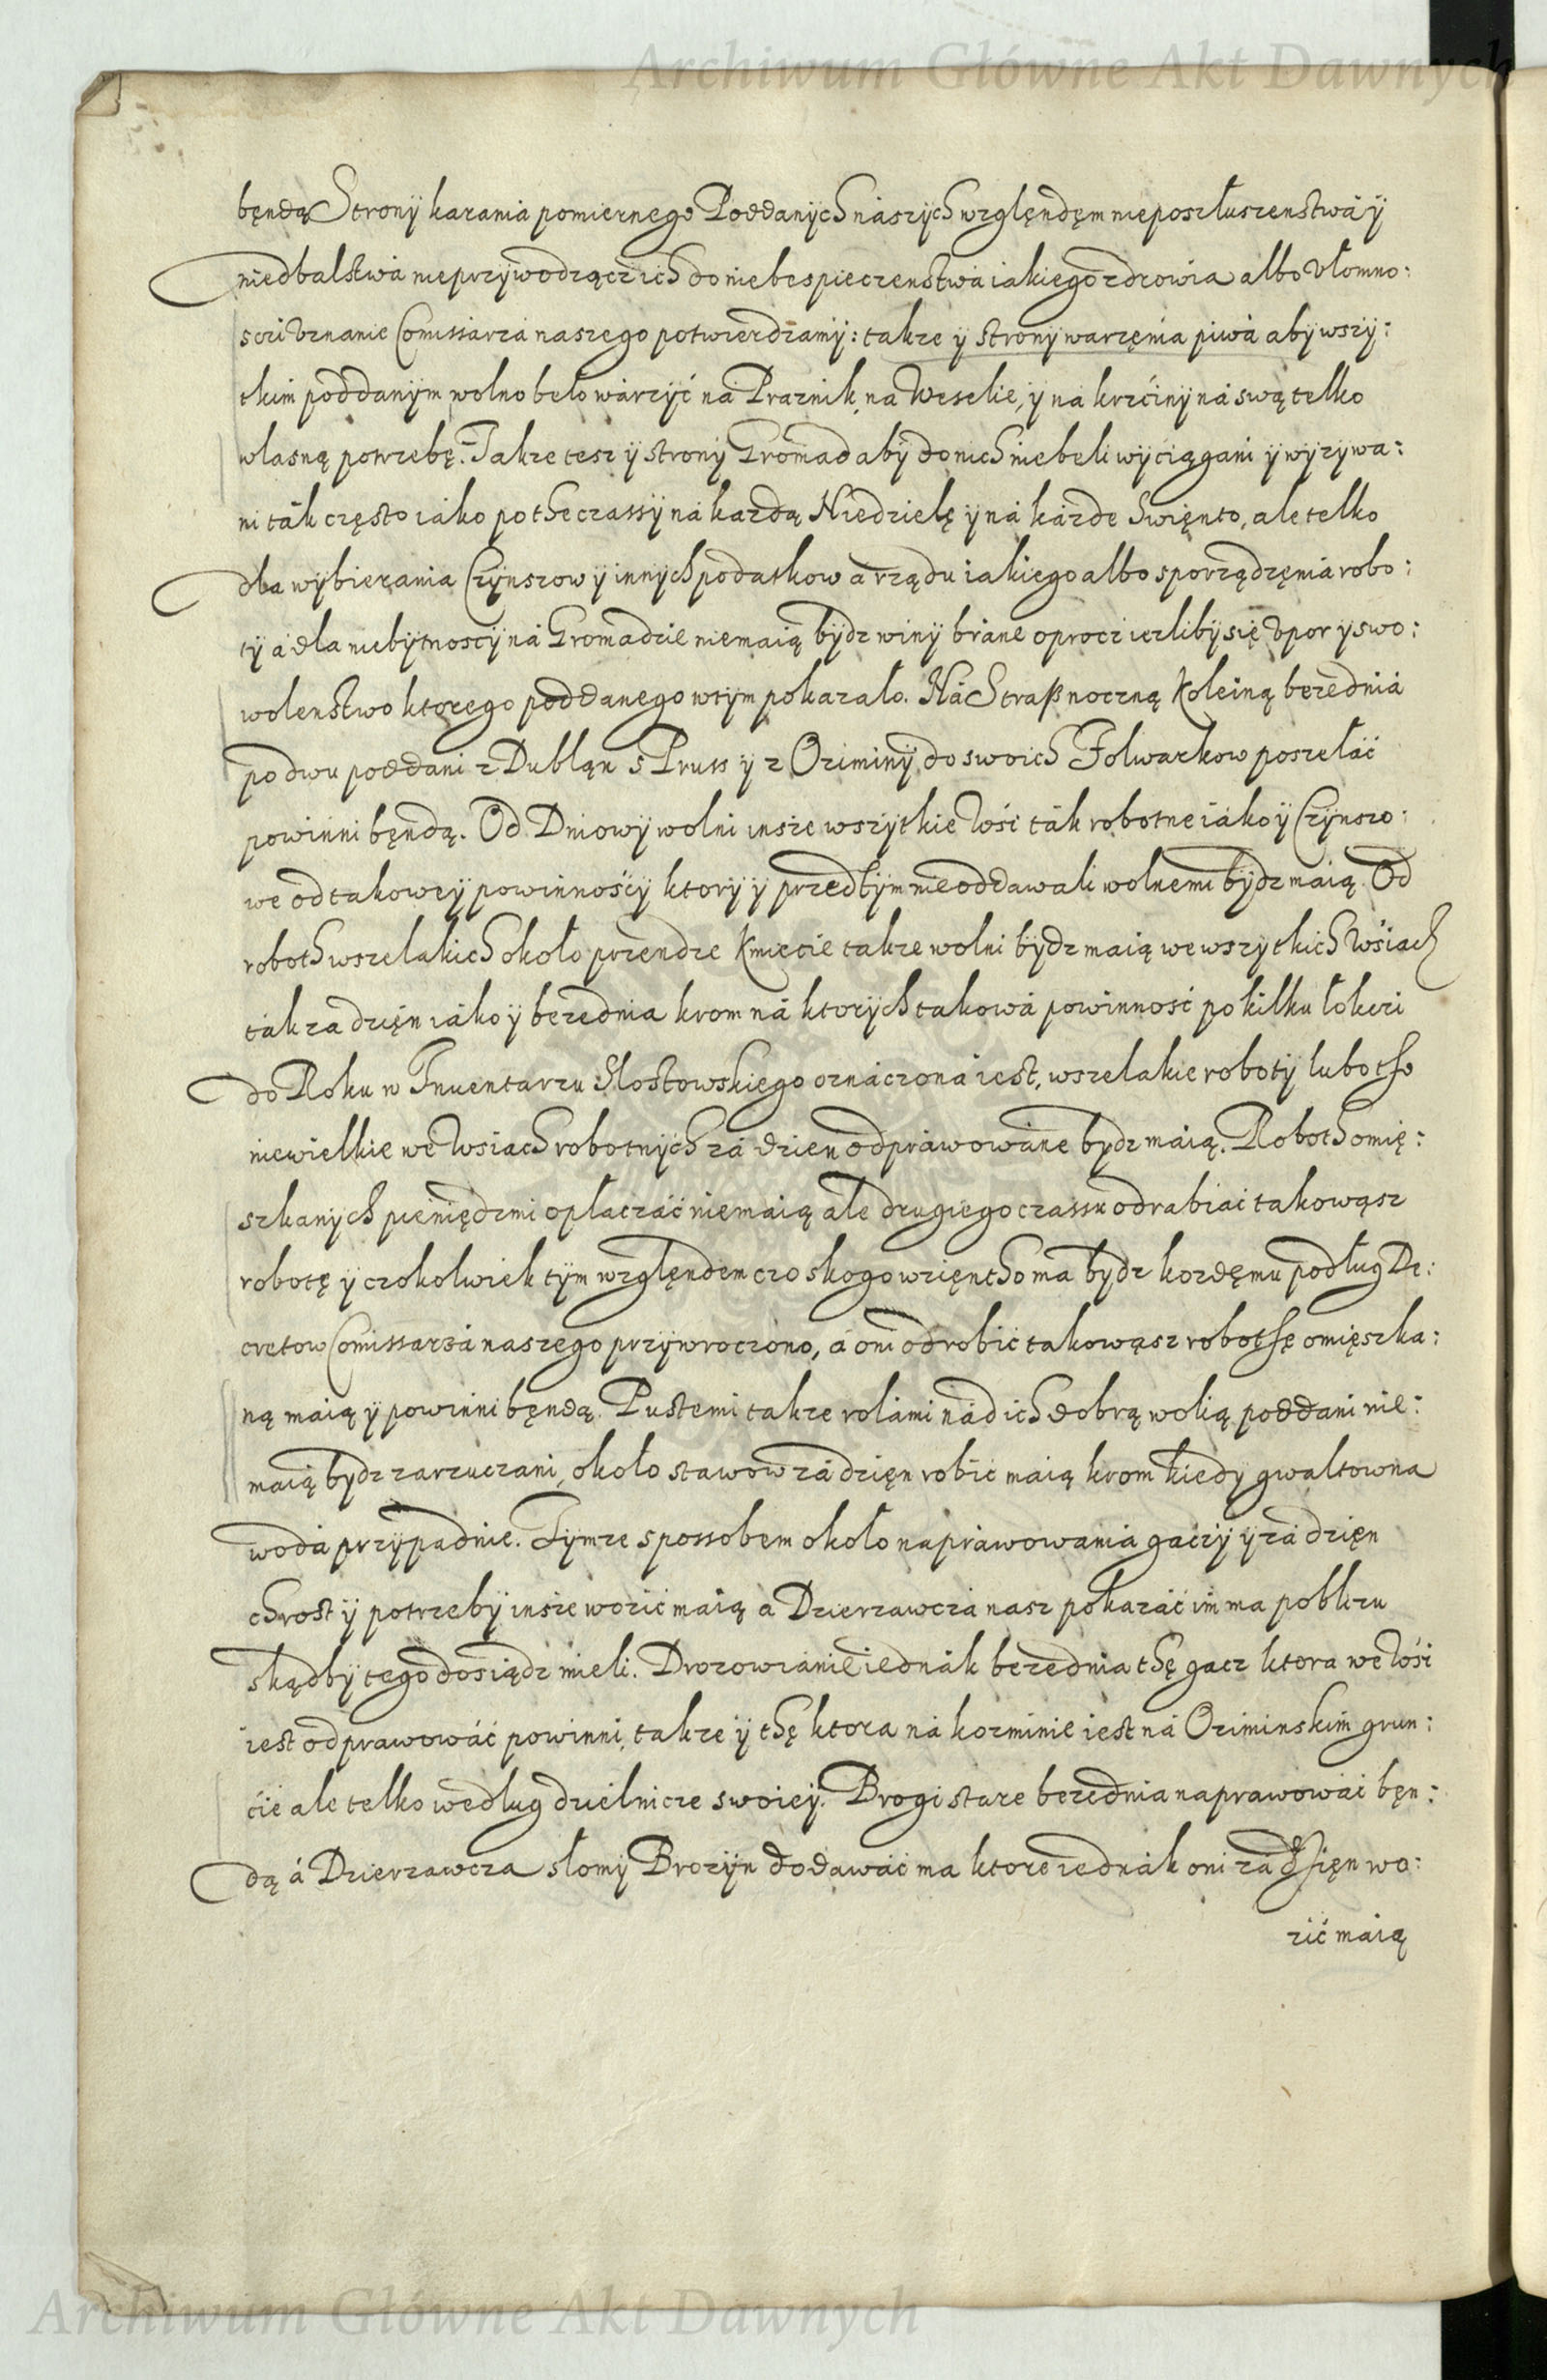 Archiwum Główne Akt Dawnych
bęndą Strony karania pomiernego Poddanych nászych względęm nieposzłuszenstwá ÿ
niedbalstwá nieprzÿwodzącz ich do niebespieczenstwá iakiego zdrowia albo Vłomno:
sczi Vznanie Comissarzá naszego potwierdzamÿ: takze ÿ stronÿ warzęnia piwá abÿ wszÿ:
tkim poddanÿm wolno beło wárzÿć ná Praznik, na Weselie, ÿ ná krzćinÿ ná swą telko
własną potrzebę. Takze tesz ÿ stronÿ Gromad abÿ do nich niebeli wÿciągani ÿ wÿzÿwa:
ni ták często iáko po the czassÿ ná kazdą Niedzielę ÿ ná kázde Swięnto, ale telko
dla wÿbierania Czÿnszow ÿ innÿch podatkow a rządu iakiego albo sporządzęniá robo:
tÿ á dla niebÿtnoscÿ ná Gromadzie niemaią bÿdz winÿ bráne oprocz iezlibÿ się Vpor ÿ swo:
wolenstwo ktorego poddanego wtÿm pokazało. Ná Straß noczną koleiną bezedniá
po dwu poddani z Dubląn s Pruss ÿ z Oziminÿ do swoich Folwarkow poszełáć
powinni bęndą. Od Dniowÿ wolni insze wszÿtkie Wśi ták robotne iáko ÿ Czÿnszo:
we od takoweÿ powinnośćÿ ktorÿ ÿ przedtÿm nieoddawali wolnemi bÿdz maią. Od
roboth wszelakich około przendze Kmiecie takze wolni bÿdz maią we wszÿtkich Wśiach
ták za dzięn iáko ÿ bezednia krom ná ktorÿch takowá powinność po kilku łokczi
do Roku w Inuentarzu Słostowskiego oznáczona iest, wszelakie robotÿ lubo tho
niewielkie we Wsiach robotnÿch zá dzien odpráwowáne bydz máią. Roboth omię:
szkanÿch pieniędzmi opłaczáć niemaią ále drugiego czassu odrabiać takowąsz
robotę ÿ czokolwiek tÿm względen czo skogo wzięntho ma bÿdz kozdęmu podług De:
cretow Comissarzá naszego przÿwroczono, á oni odrobić takowąsz robothę omięszka:
ną maią ÿ powinni bęndą. Pustemi takze rolámi nád ich dobrą wolią poddani nie:
maią bÿdz zarzuczani, około stawow zá dzięn robić maią krom kiedÿ gwałtowna
wodá przÿpadnie. Tÿmze spossobem około napráwowania gaczÿ ÿ zá dzięn
chrost ÿ potrzebÿ insze wozić maią a Dzierzawczá nasz pokazáć im ma poblizu
skądbÿ tego dosiądz mieli. Drozowianie iednák bezednia thę gacz ktora we Wśi
iest odprawowáć powinni, takze ÿ thę ktora ná kozminie iest ná Oziminskim grun:
ćie ale telko według dzielnicze swoieÿ. Brogi stare bezednia naprawowái bęn:
dą á Dzierzawcza słomÿ Brozÿn dodawáć ma ktore iednák oni zá dzięn wo:
zić maią
Archiwum Główne Akt Dawnych